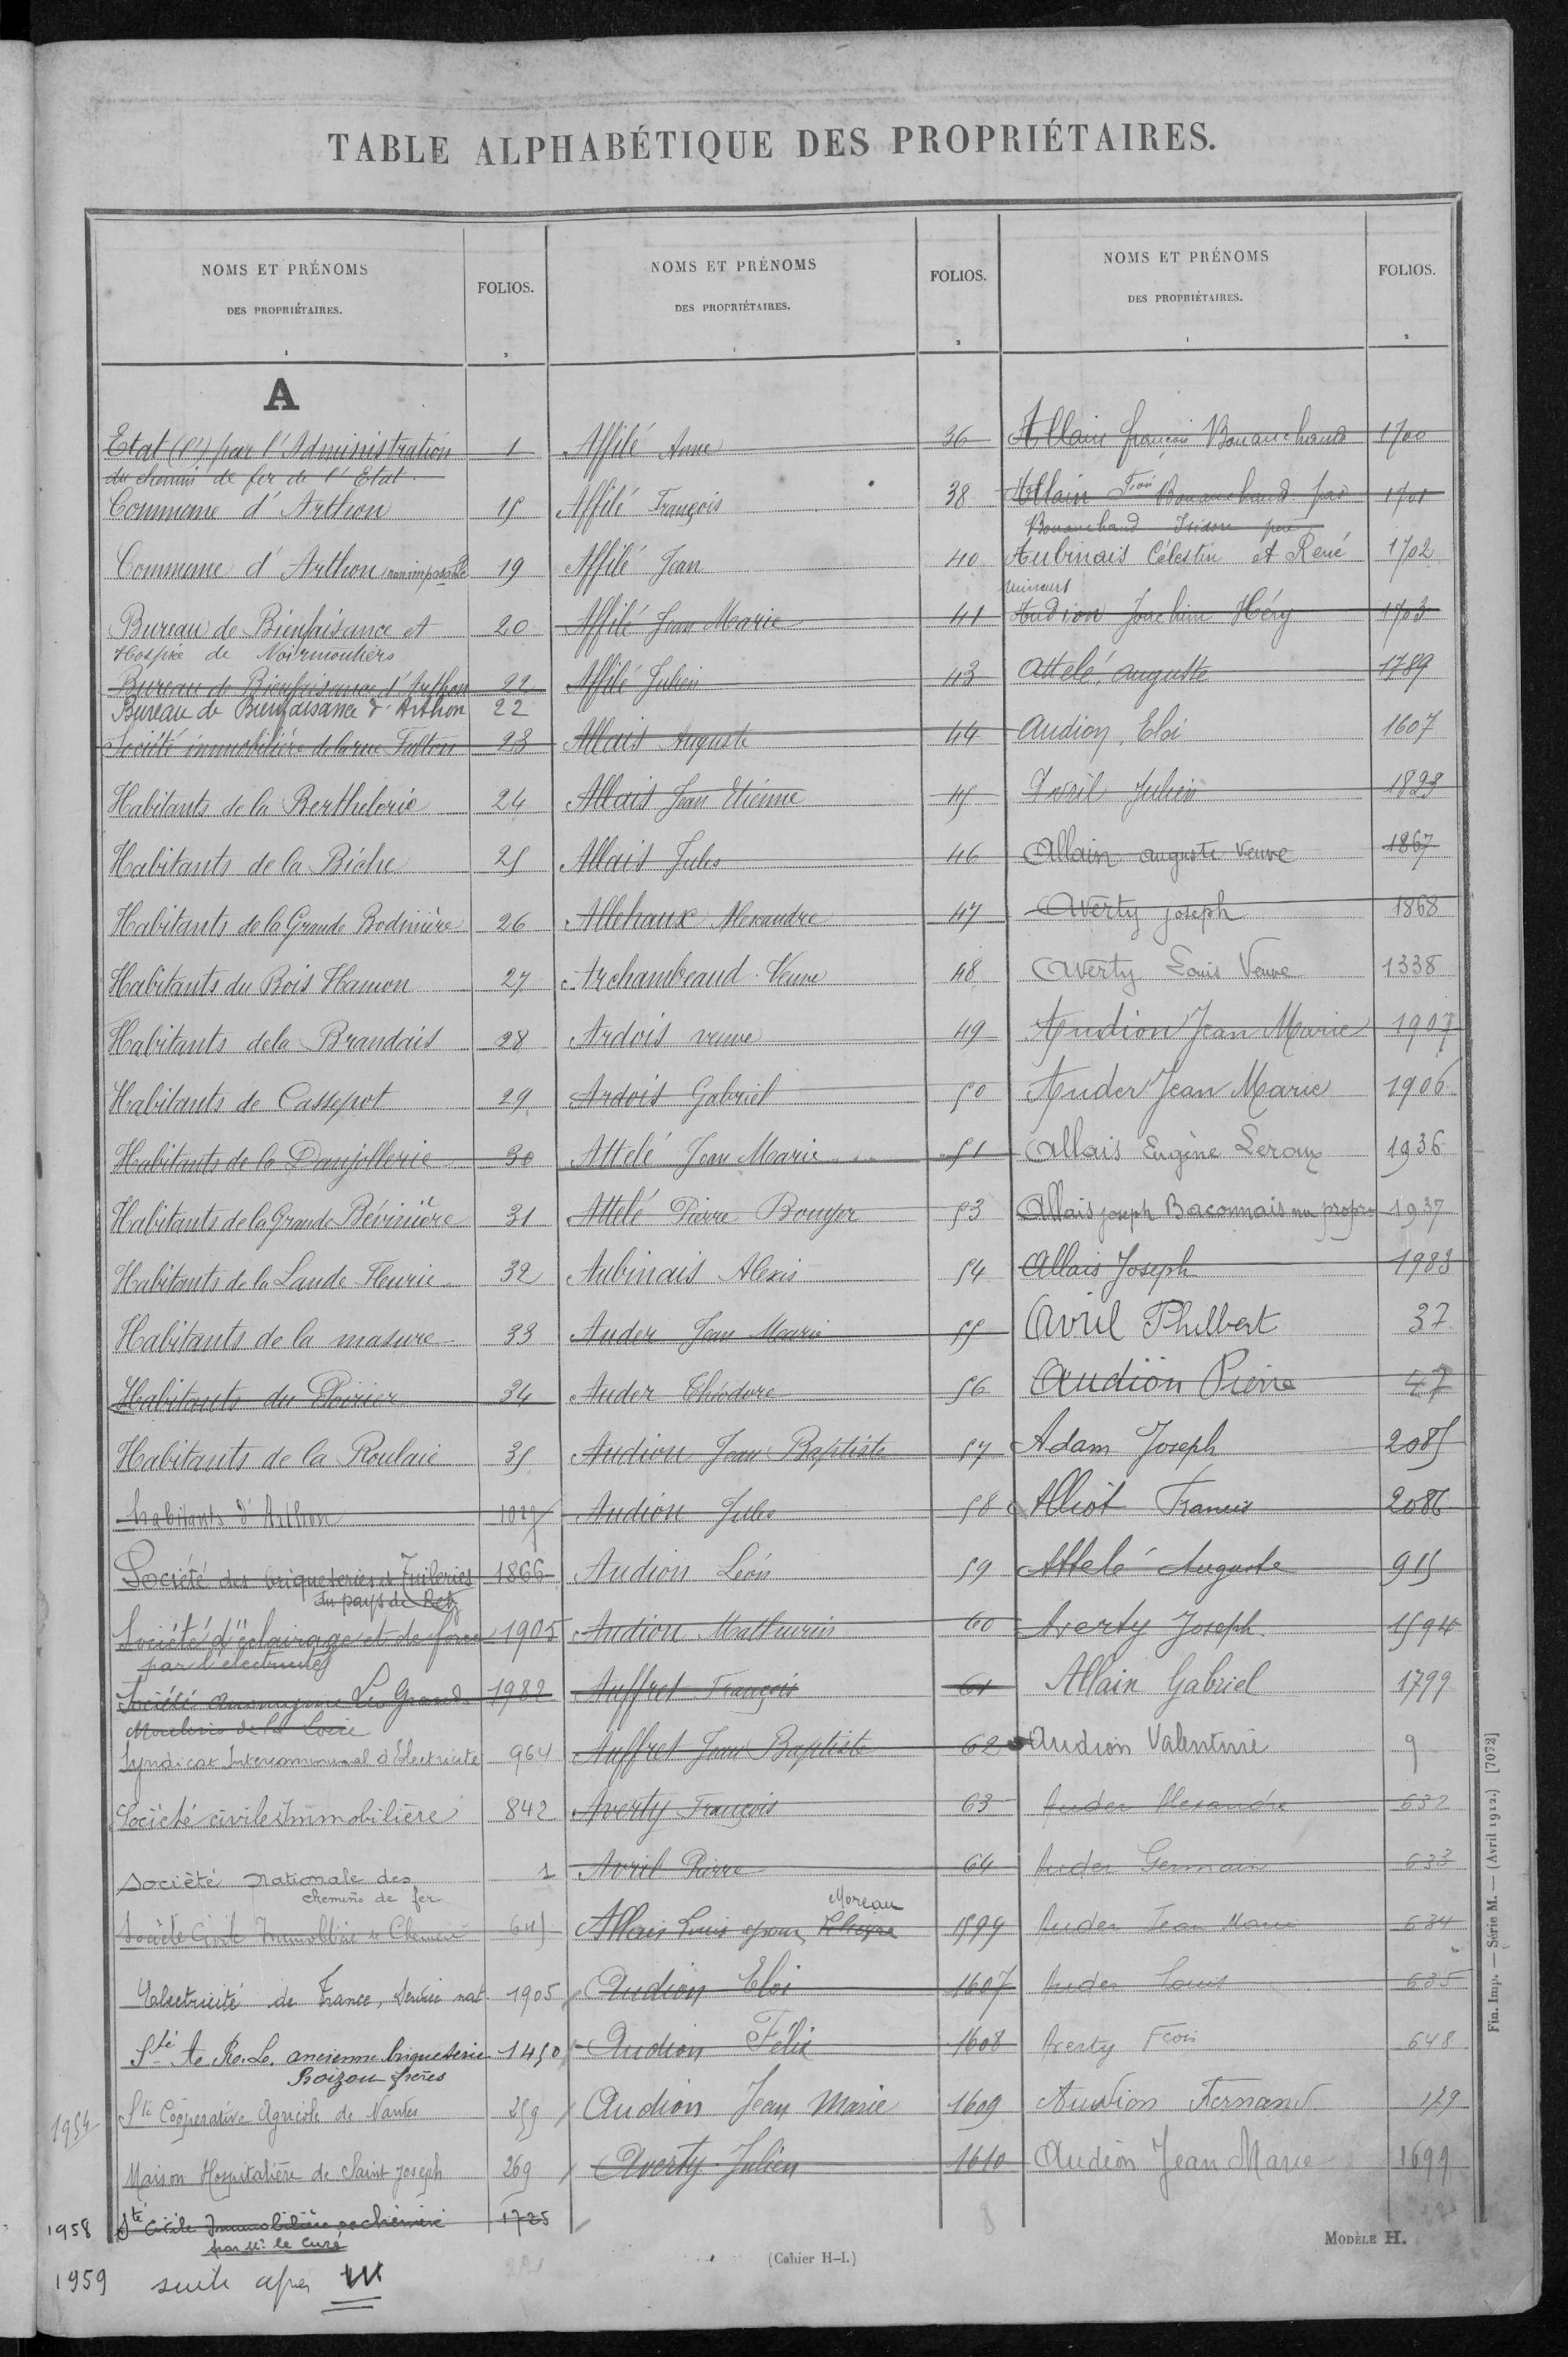 TABLE ALPHABÉTIQUE DES PROPRIÉTAIRES.
NOMS ET PRÉNOMS
DES PROPRIÉTAIRES.
1
FOLIOS.
2
A
Etat (l') par l'Administration 1
du chemin de fer de l'Etat.
Commune d'Arthon 15
Commune d'Arthon, non imposable 19
Bureau de Bienfaisance et 20
Hospice de Noirmoutiers
Bureau de Bienfaisance d'Arthon 22
Bureau de Bienfaisance d'Arthon 22
Société immobilière de la rue Fulton 23
Habitants de la Berthelorie 24
Habitants de la Biche 25
Habitants de la Grande Bodinière 26
Habitants du Bois Hamon 27
Habitants de la Brandais 28
Habitants de Cassepot 29
Habitants de la Danjollerie 30
Habitants de la Grande Bévinière 31
Habitants de la Lande Fleurie 32
Habitants de la masure 33
Habitants du Poirier 34
Habitants de la Roulaie 35
habitants d'Arthon 1027
Société des briqueteries et Tuileries 1866
du pays de Retz
Société d'éclairage et de force 1905
par l'électricité
Société anonyme Les Grands 1982
Moulins de la Loire
Syndicat Intercommunal d'Electricité 964
Société civile Immobilière 842
Société Nationale des 1
chemins de fer
Société Civile Immobilière de Chemeré 645
Electricité de France, Service nat. 1905
Sté A. R. L. ancienne briqueterie 1450
Boizou frères
1954 Sté Coopérative Agricole de Nantes 259
Maison Hospitalière de Saint Joseph 269
1958 Sté Civile Immobilière de chemeré 1725
par Mr le Curé
1959 suite après W
NOMS ET PRÉNOMS
DES PROPRIÉTAIRES.
1
FOLIOS.
2
Affilé Anne 36
Affilé François 38
Affilé Jean 40
Affilé Jean Marie 41
Affilé Julien 43
Allais Auguste 44
Allais Jean Etienne 45
Allais Jules 46
Allehaux Alexandre 47
Archambeaud Veuve 48
Ardois veuve 49
Ardois Gabriel 50
Attelé Jean Marie 51
Attelé Pierre Bouyer 53
Aubinais Alexis 54
Auder Jean Marie 55
Auder Théodore 56
Audion Jean Baptiste 57
Audion Jules 58
Audion Léon 59
Audion Mathurin 60
Auffret François 61
Auffret Jean Baptiste 62
Averty François 63
Avril Pierre 64
Moreau
Allais Louis époux 1599
Audion Eloi 1607
Audion Félix 1608
Audion Jean Marie 1609
Averty Julien 1610
(Cahier H-I.)
NOMS ET PRÉNOMS
DES PROPRIÉTAIRES.
1
FOLIOS.
2
Allain françois Bouanchaud 1700
Allain Fçois Bouanchaud par 1701
Bouanchaud Isidore père
Aubinais Célestin et René 1702
mineurs
Audion Joachim Héry 1703
Attelé, auguste 1789
Audion, Eloi 1607
Avril Julien 1823
Allain auguste Veuve 1867
Averty joseph 1868
Averty Louis Veuve 1338
Audion Jean Marie 1907
Auder Jean Marie 1906
Allais Eugène Leroux 1936
Allais joseph Baconnais nu propre 1937
Allais Joseph 1983
Avril Philbert 37
Audion Pierre 47
Adam Joseph 2085
Alliot Francis 2086
Attelé Auguste 915
Averty Joseph 1594
Allain Gabriel 1799
Audion Valentine 9
Auder Alexandre 632
Auder Germain 633
Auder Jean Marie 634
Auder Louis 635
Averty Fçois 648
Audion Fernand 129
Audion Jean Marie 1699
MODÈLE H.
Fin. Imp. — Série M. — (Avril 1912.) [7072]